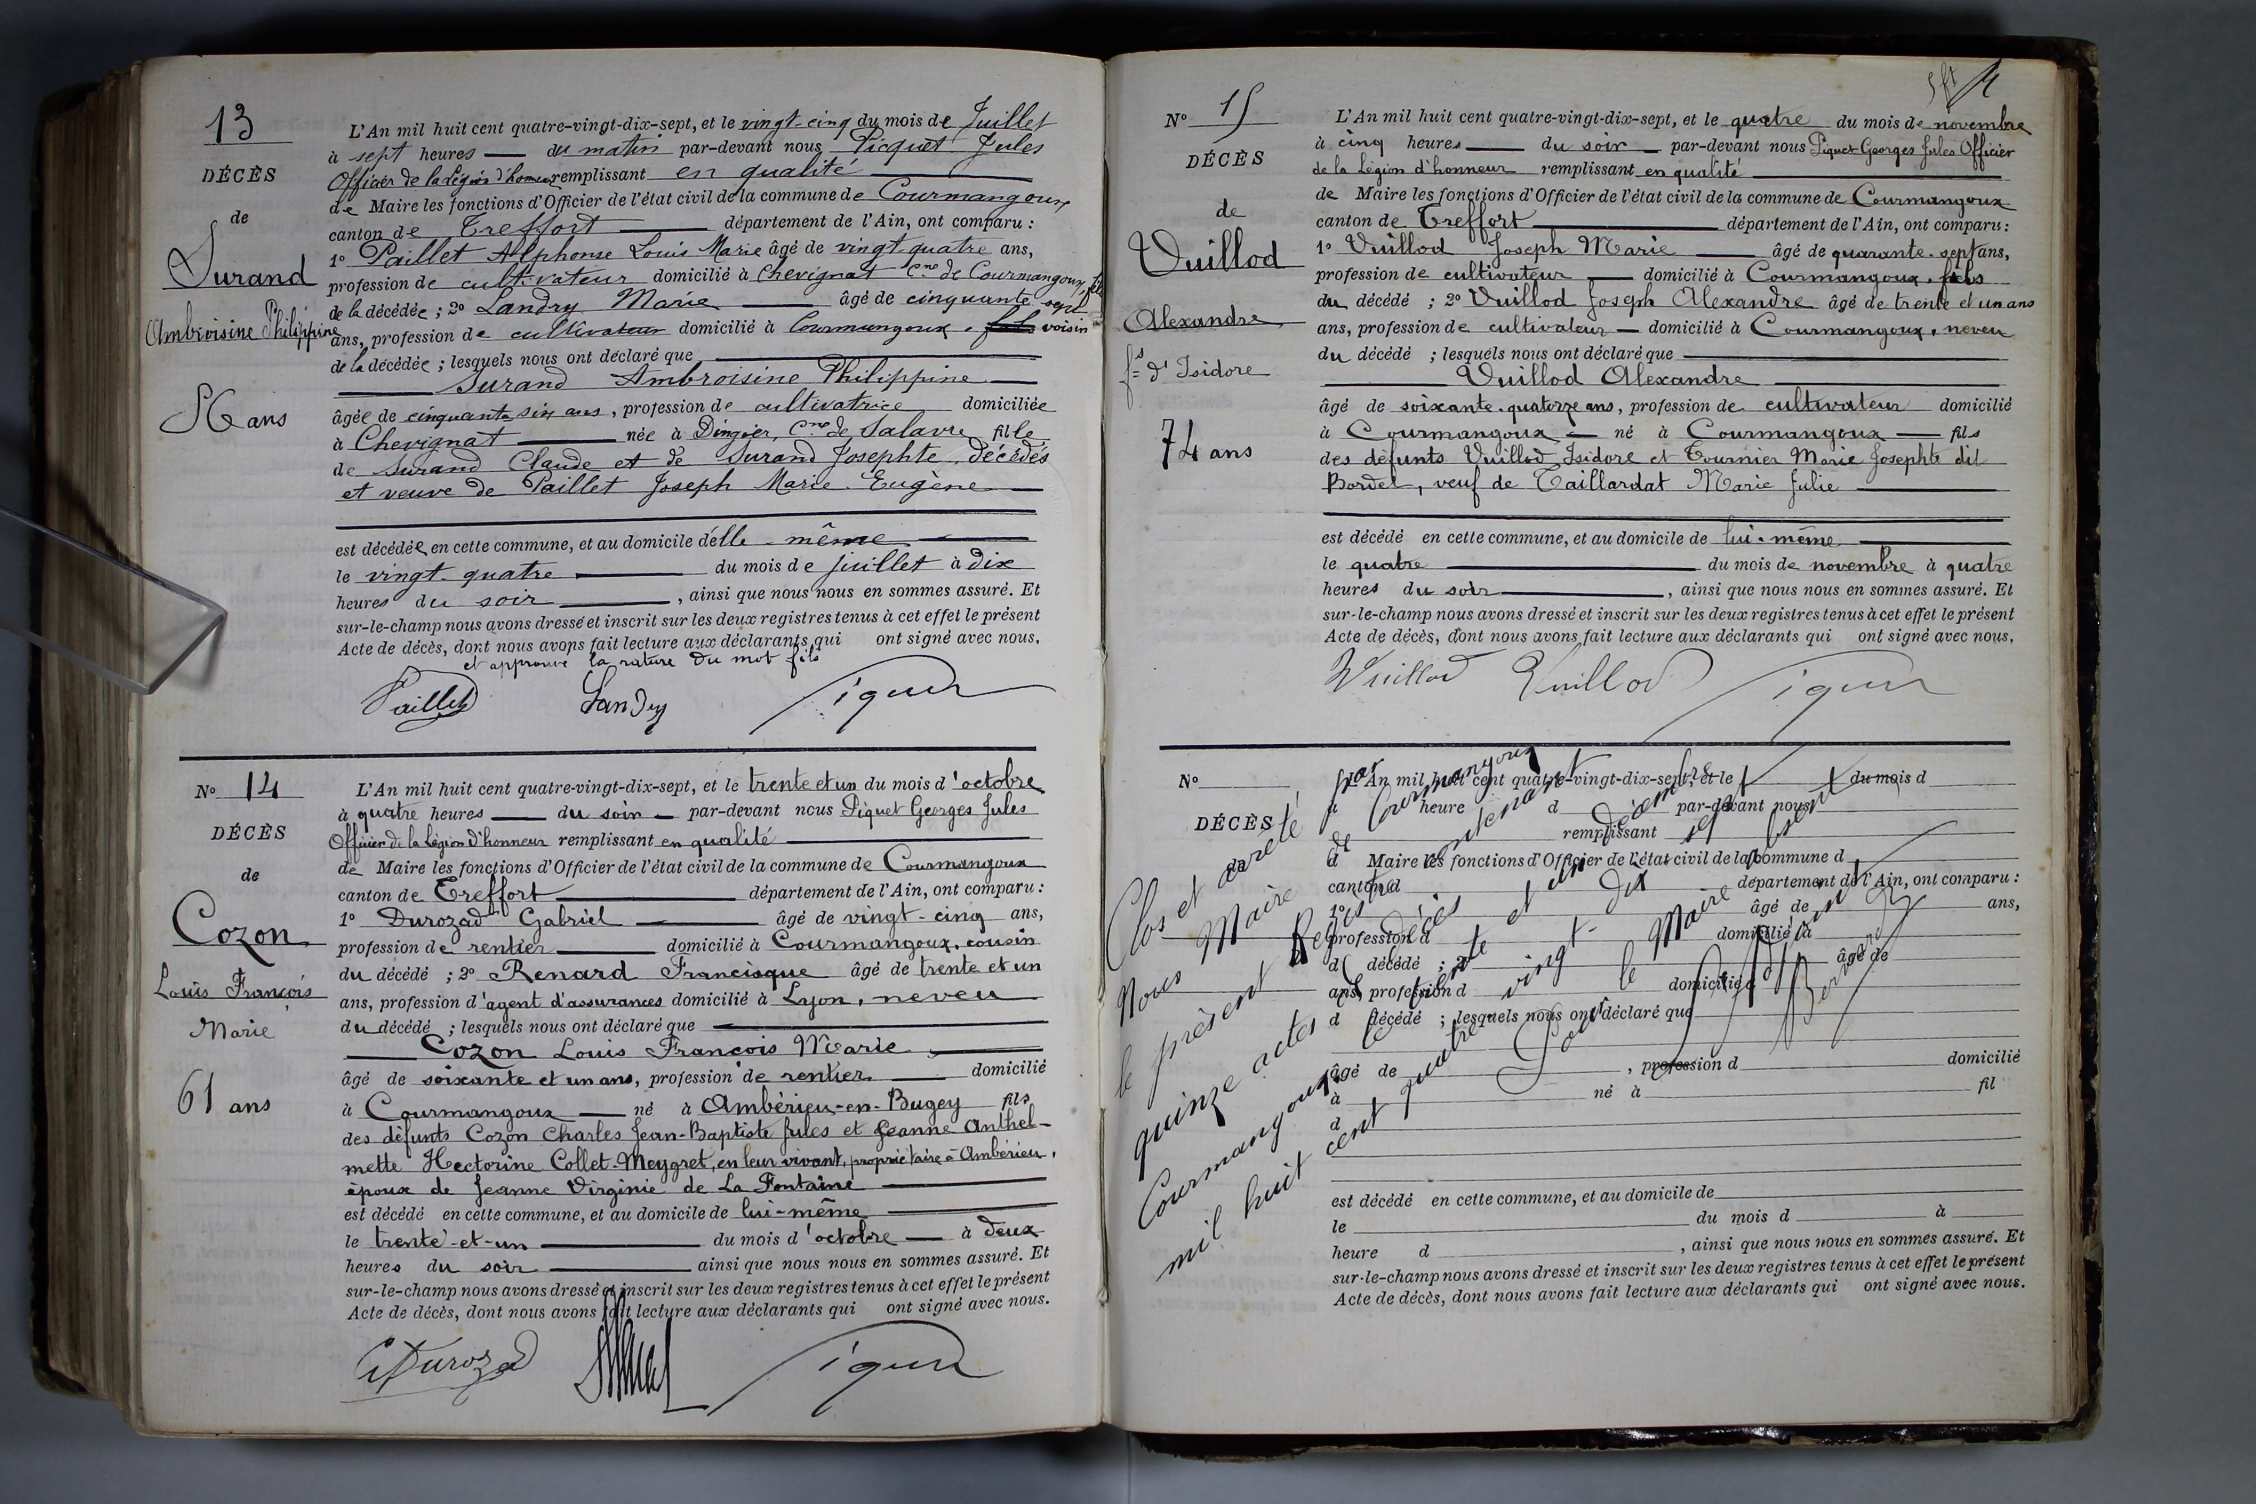 13
DÉCÈS
de
Surand
Ambroisine Philippine
56 ans
L'An mil huit cent quatre-vingt-dix-sept, et le vingt-cinq du mois de Juillet
à sept heures du matin par-devant nous Picquet Jules
Officier de la Légion d'honneur remplissant en qualité
de Maire les fonctions d'Officier de l'état civil de la commune de Courmangoux
canton de Treffort département de l'Ain, ont comparu :
1° Paillet Alphonse Louis Marie âgé de vingt-quatre ans,
profession de cultivateur domicilié à Chevignat Cne de Courmangoux, fils
de la décédée ; 2° Landry Marie âgé de cinquante sept
ans, profession de cultivateur domicilié à Courmangoux, fils voisin
de la décédée ; lesquels nous ont déclaré que
Surand Ambroisine Philippine
âgée de cinquante six ans, profession de cultivatrice domiciliée
à Chevignat née à Dingier, Cne de Salavre fille
de Surand Claude et de Surand Josephte, décédés
et veuve de Paillet Joseph Marie Eugène
est décédée en cette commune, et au domicile d'elle-même
le vingt-quatre du mois de juillet à dix
heures du soir, ainsi que nous nous en sommes assuré. Et
sur-le-champ nous avons dressé et inscrit sur les deux registres tenus à cet effet le présent
Acte de décès, dont nous avons fait lecture aux déclarants qui ont signé avec nous.
et approuve la rature du mot fils
Paillet Landry Piquet
N° 14
DÉCÈS
de
Cozon
Louis François
Marie
61 ans
L'An mil huit cent quatre-vingt-dix-sept, et le trente et un du mois d'octobre
à quatre heures du soir par-devant nous Piquet Georges Jules
Officier de la Légion d'honneur remplissant en qualité
de Maire les fonctions d'Officier de l'état civil de la commune de Courmangoux
canton de Treffort département de l'Ain, ont comparu :
1° Durozad Gabriel âgé de vingt-cinq ans,
profession de rentier domicilié à Courmangoux, cousin
du décédé ; 2° Renard Francisque âgé de trente et un
ans, profession d'agent d'assurances domicilié à Lyon, neveu
du décédé ; lesquels nous ont déclaré que
Cozon Louis François Marie
âgé de soixante et un ans, profession de rentier domicilié
à Courmangoux né à Ambérieu-en-Bugey fils
des défunts Cozon Charles Jean-Baptiste Jules et Jeanne Anthel-
mette Hectorine Collet-Meygret, en leur vivant, propriétaire à Ambérieu,
époux de Jeanne Virginie de La Fontaine
est décédé en cette commune, et au domicile de lui-même
le trente-et-un du mois d'octobre à deux
heures du soir ainsi que nous nous en sommes assuré. Et
sur-le-champ nous avons dressé et inscrit sur les deux registres tenus à cet effet le présent
Acte de décès, dont nous avons fait lecture aux déclarants qui ont signé avec nous.
G Durozad Piquet
N° 15
DÉCÈS
de
Vuillod
Alexandre
fs d'Isidore
74 ans
L'An mil huit cent quatre-vingt-dix-sept, et le quatre du mois de novembre
à cinq heures du soir par-devant nous Piquet Georges Jules Officier
de la Légion d'honneur remplissant en qualité
de Maire les fonctions d'Officier de l'état civil de la commune de Courmangoux
canton de Treffort département de l'Ain, ont comparu :
1° Vuillod Joseph Marie âgé de quarante-sept ans,
profession de cultivateur domicilié à Courmangoux, fils
du décédé ; 2° Vuillod Joseph Alexandre âgé de trente et un ans
ans, profession de cultivateur domicilié à Courmangoux, neveu
du décédé ; lesquels nous ont déclaré que
Vuillod Alexandre
âgé de soixante-quatorze ans, profession de cultivateur domicilié
à Courmangoux né à Courmangoux fils
des défunts Vuillod Isidore et Tournier Marie Josephte dit
Bordel, veuf de Taillardat Marie Julie
est décédé en cette commune, et au domicile de lui-même
le quatre du mois de novembre à quatre
heures du soir, ainsi que nous nous en sommes assuré. Et
sur-le-champ nous avons dressé et inscrit sur les deux registres tenus à cet effet le présent
Acte de décès, dont nous avons fait lecture aux déclarants qui ont signé avec nous.
Vuillod Vuillod Piquet
N°
DÉCÈS
de
L'An mil huit cent quatre-vingt-dix-sept, et le du mois d
à heure d par-devant nous
remplissant
d Maire les fonctions d'Officier de l'état civil de la commune d
canton d département de l'Ain, ont comparu :
1° âgé de ans,
profession d domicilié à
d décédé ; 2° âgé de
ans, profession d domicilié à
d décédé ; lesquels nous ont déclaré que
âgé de , profession d domicilié
à né à fil
d
est décédé en cette commune, et au domicile de
le du mois d à
heure d , ainsi que nous nous en sommes assuré. Et
sur-le-champ nous avons dressé et inscrit sur les deux registres tenus à cet effet le présent
Acte de décès, dont nous avons fait lecture aux déclarants qui ont signé avec nous.
Clos et arrêté par
Nous Maire de Courmangoux
le présent Registre contenant
quinze actes de décès
Courmangoux le trente et un Décembre
mil huit cent quatre-vingt-dix sept
Pour le Maire absent
L'adjoint